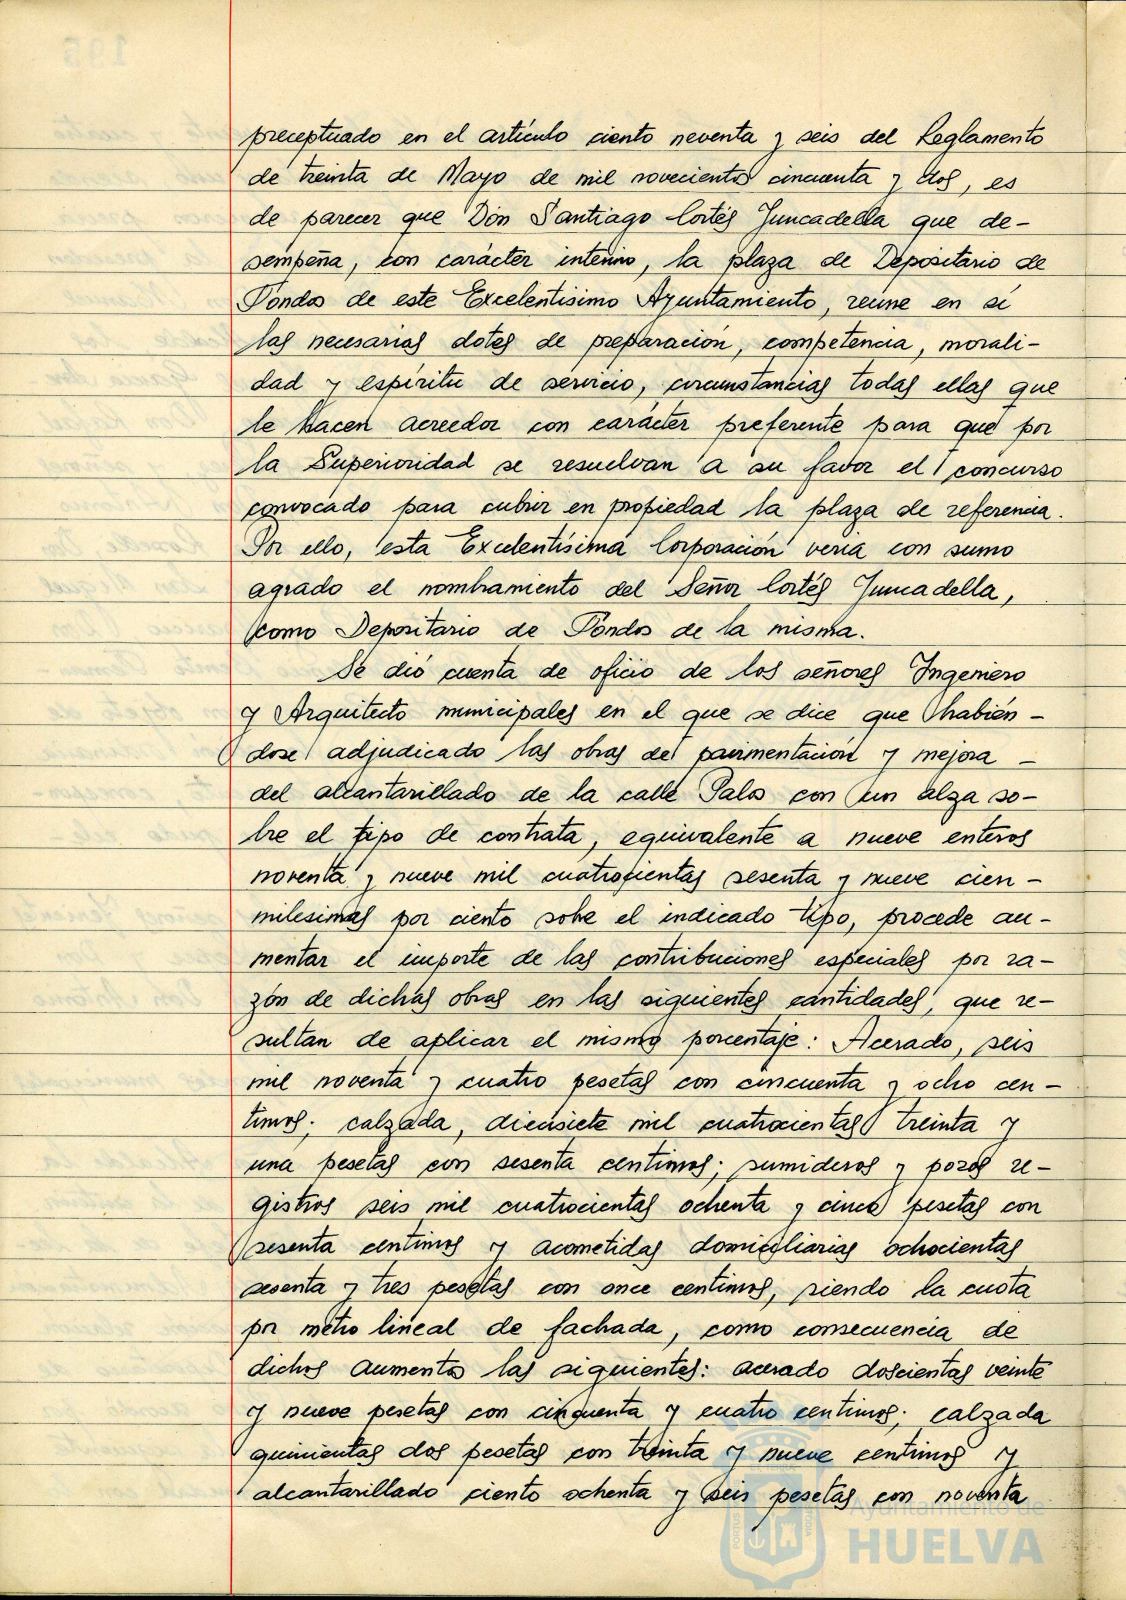 preceptuado en el artículo ciento noventa y seis del Reglamento
de treinta de Mayo de mil novecientos cincuenta y dos, es
de parecer que Don Santiago Cortés Juncadella que de-
sempeña, con carácter interino, la plaza de Depositario de
Fondos de este Excelentísimo Ayuntamiento, reúne en sí
las necesarias dotes de preparación, competencia, morali-
dad y espíritu de servicio, circunstancias todas ellas que
le hacen acreedor con carácter preferente para que por
la Superioridad se resuelvan a su favor el concurso
convocado para cubrir en propiedad la plaza de referencia.
Por ello, esta Excelentísima Corporación vería con sumo
agrado el nombramiento del Señor Cortés Juncadella,
como Depositario de Fondos de la misma.
Se dió cuenta de oficio de los señores Ingeniero
y Arquitecto municipales en el que se dice que habién-
dose adjudicado las obras de pavimentación y mejora
del alcantarillado de la calle Palos con un alza so-
bre el tipo de contrata, equivalente a nueve enteros
noventa y nueve mil cuatrocientas sesenta y nueve cien-
milesimas por ciento sobre el indicado tipo, procede au-
mentar el importe de las contribuciones especiales por ra-
zón de dichas obras en las siguientes cantidades, que re-
sultan de aplicar el mismo porcentaje: Acerado, seis
mil noventa y cuatro pesetas con cincuenta y ocho cen-
timos; calzada, diecisiete mil cuatrocientas treinta y
una pesetas con sesenta centimos; sumideros y pozos re-
gistros seis mil cuatrocientas ochenta y cinco pesetas con
sesenta centimos y acometidas domiciliarias ochocientas
sesenta y tres pesetas con once centimos, siendo la cuota
por metro lineal de fachada, como consecuencia de
dichos aumentos las siguientes: acerado doscientas veinte
y nueve pesetas con cincuenta y cuatro centimos; calzada
quinientas dos pesetas con treinta y nueve centimos y
alcantarillado ciento ochenta y seis pesetas con noventa
Ayuntamiento de
HUELVA